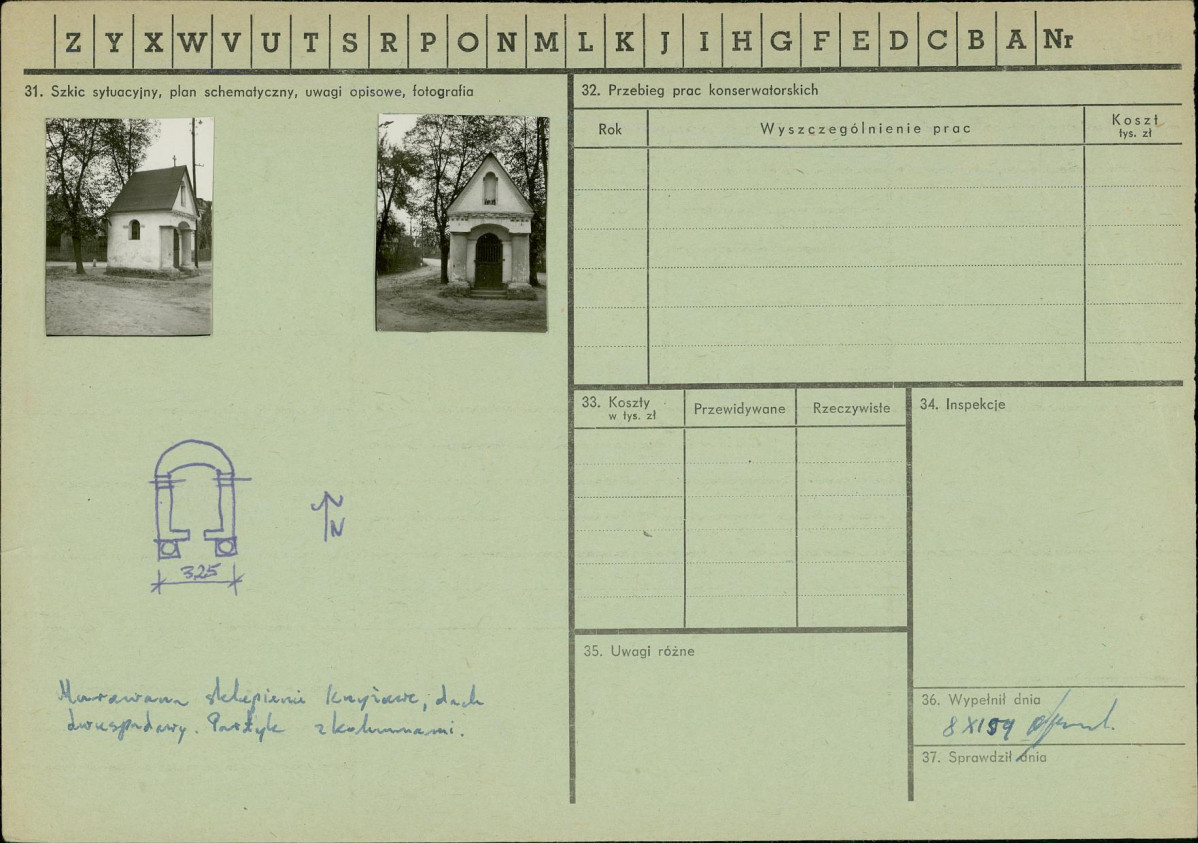 Z Y X W V U T S R P O N M L K J I H G F E D C B A Nr
31. Szkic sytuacyjny, plan schematyczny, uwagi opisowe, fotografia
325
N
Murowana sklepienie krzyżowe, dach
dwuspadowy. Portyk z kolumnami.
32. Przebieg prac konserwatorskich
Rok
Wyszczególnienie prac
Koszt
tys. zł
33. Koszty
w tys. zł
Przewidywane
Rzeczywiste
34. Inspekcje
35. Uwagi różne
36. Wypełnił dnia
8 XI 59
37. Sprawdził dnia